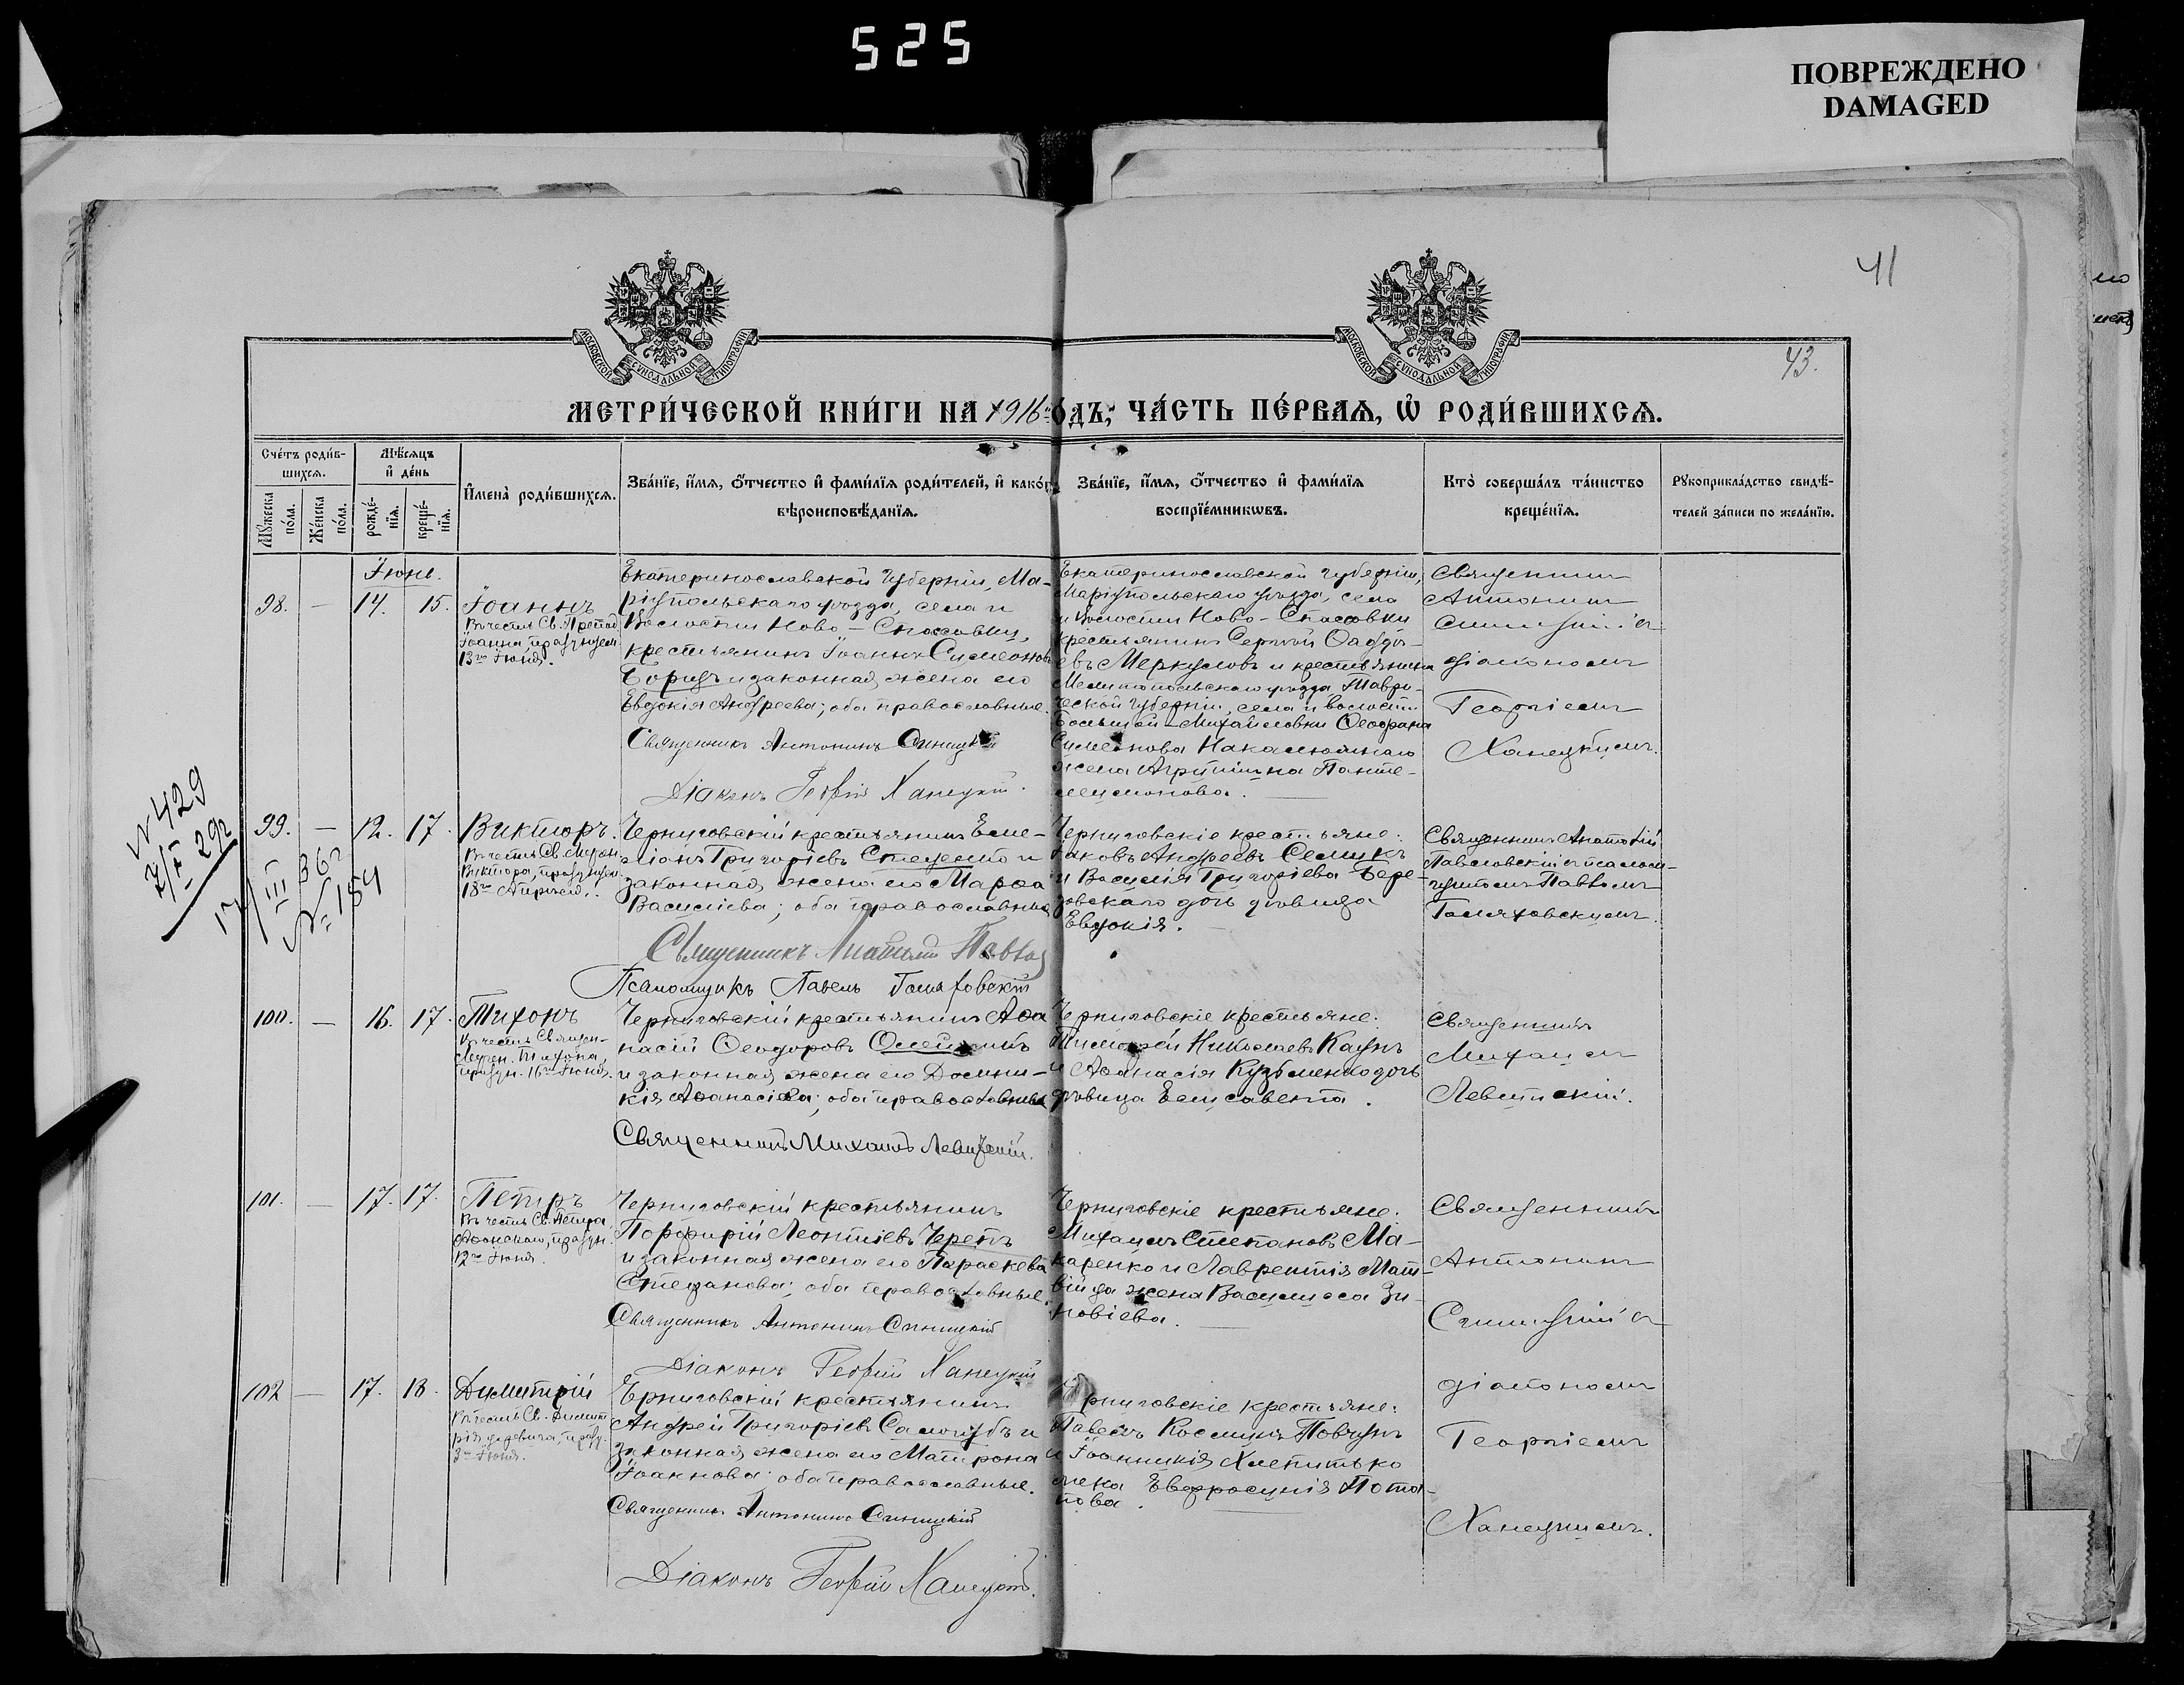 525
ПОВРЕЖДЕНО
DAMAGED
41
43.
МОСКОВСКОЙ СУНОДАЛЬНОЙ ТИПОГРАФІИ
МОСКОВСКОЙ СУНОДАЛЬНОЙ ТИПОГРАФІИ
МЕТРИ́ЧЕСКОЙ КНИ́ГИ НА 1916 о́дъ, ЧА́СТЬ ПЕ́РВАѦ, Ѡ҆ РОДИ́ВШИХСѦ.
Сче́тъ роди́в-
шихсѧ.
Мꙋ́жеска по́ла.
Же́нска по́ла.
Мѣ́сѧцъ
и҆ де́нь
рожде́-
нїѧ.
креще́-
нїѧ.
И҆мена̀ роди́вшихсѧ.
Зва́нїе, и҆́мѧ, ѻ҆́тчество и҆ фами́лїѧ роди́телей, и҆ како́гѡ
вѣроисповѣ́данїѧ.
Зва́нїе, и҆́мѧ, ѻ҆́тчество и҆ фами́лїѧ
воспрїе́мникѡвъ.
Кто̀ соверша́лъ та́инство
креще́нїѧ.
Рꙋкоприкла́дство свидѣ́-
телей за́писи по жела́нїю.
Іюнь.
98. — 14. 15.
Іоаннъ
Въ честь Св.
Іоанна, празднуем.
13го Іюня.
Екатеринославской губерніи, Ма-
ріупольскаго уѣзда, села и
Волости Ново-Спасовки,
крестьянинъ Іоаннъ Симеоновъ
Борецъ и законная жена его
Евдокія Андреева; оба православные.
Священникъ Антонинъ Синицкій
Діаконъ Георгій Ханецкій.
Екатеринославской губерніи,
Маріупольскаго уѣзда, села
и Волости Ново-Спасовки
крестьянинъ Сергѣй Ѳадде-
евъ Меркуловъ и крестьянина
Мелитопольскаго уѣзда Таври-
ческой губерніи, села и волости
Большой-Михайловки Ѳеофана
Симеонова
жена Агриппина Панте-
леимонова.
Священник
Антонинъ
Синицкій съ
діакономъ
Георгіемъ
Ханецкимъ.
N 429
7/X 29г
17/III 36г
№ 184
99. — 12. 17.
Викторъ.
Въ честь Св. Мучен.
Виктора, празднуем.
18го Апрѣля.
Черниговскій крестьянинъ Еме-
ліанъ Григоріевъ Стеценко и
законная жена его Марѳа
Василіева; оба православные
Священникъ Анатолій Павлов
Псаломщикъ Павелъ Голяховскій
Черниговскіе крестьяне:
Іаковъ Андреевъ Семикъ
и Василія Григоріева Бере-
зовскаго дочь дѣвица
Евдокія.
Священникъ Анатолій
Павловскій съ псалом-
щикомъ Павломъ
Голяховскимъ.
100. — 16. 17.
Тихонъ
Въ честь Священ-
Мучен. Тихона,
праздн. 16го Іюня.
Черниговскій крестьянинъ Аѳа
насій Ѳеодоровъ
и законная жена его Домни-
кія Аѳанасіева; оба православные
Священникъ Михаилъ Левитскій.
Черниговскіе крестьяне:
Тимоѳей Николаевъ Каунъ
и Аѳанасія Кузьменко дочь
дѣвица Елисавета.
Священникъ
Михаилъ
Левитскій.
101. — 17. 17.
Петръ
Въ честь Св. Петра
Аѳонскаго, праздн.
12го Іюня.
Черниговскій крестьянинъ
Порфирій Леонтіевъ Черепъ
и законная жена его Параскева
Стефанова; оба православные.
Священникъ Антонинъ Синицкій
Діаконъ Георгій Ханецкій
Черниговскіе крестьяне:
Михаилъ Степановъ Ма-
каренко и Лаврентія Мат-
війца жена Василисса Зи-
новіева.
Священникъ
Антонинъ
Синицкій съ
діакономъ
Георгіемъ
Ханецкимъ.
102 — 17. 18.
Димитрій
Въ честь Св. Димит
рія царевича, празд.
3го Іюня.
Черниговскій крестьянинъ
Андрей Григоріевъ Самогубъ и
законная жена его Матрона
Іоаннова; оба православные.
Священникъ Антонинъ Синицкій
Діаконъ Георгій Ханецкій.
Черниговскіе крестьяне:
Павелъ Косминъ Повчунъ
и Іоанникія Хлепитько
жена Евфросинія Пота-
пова.